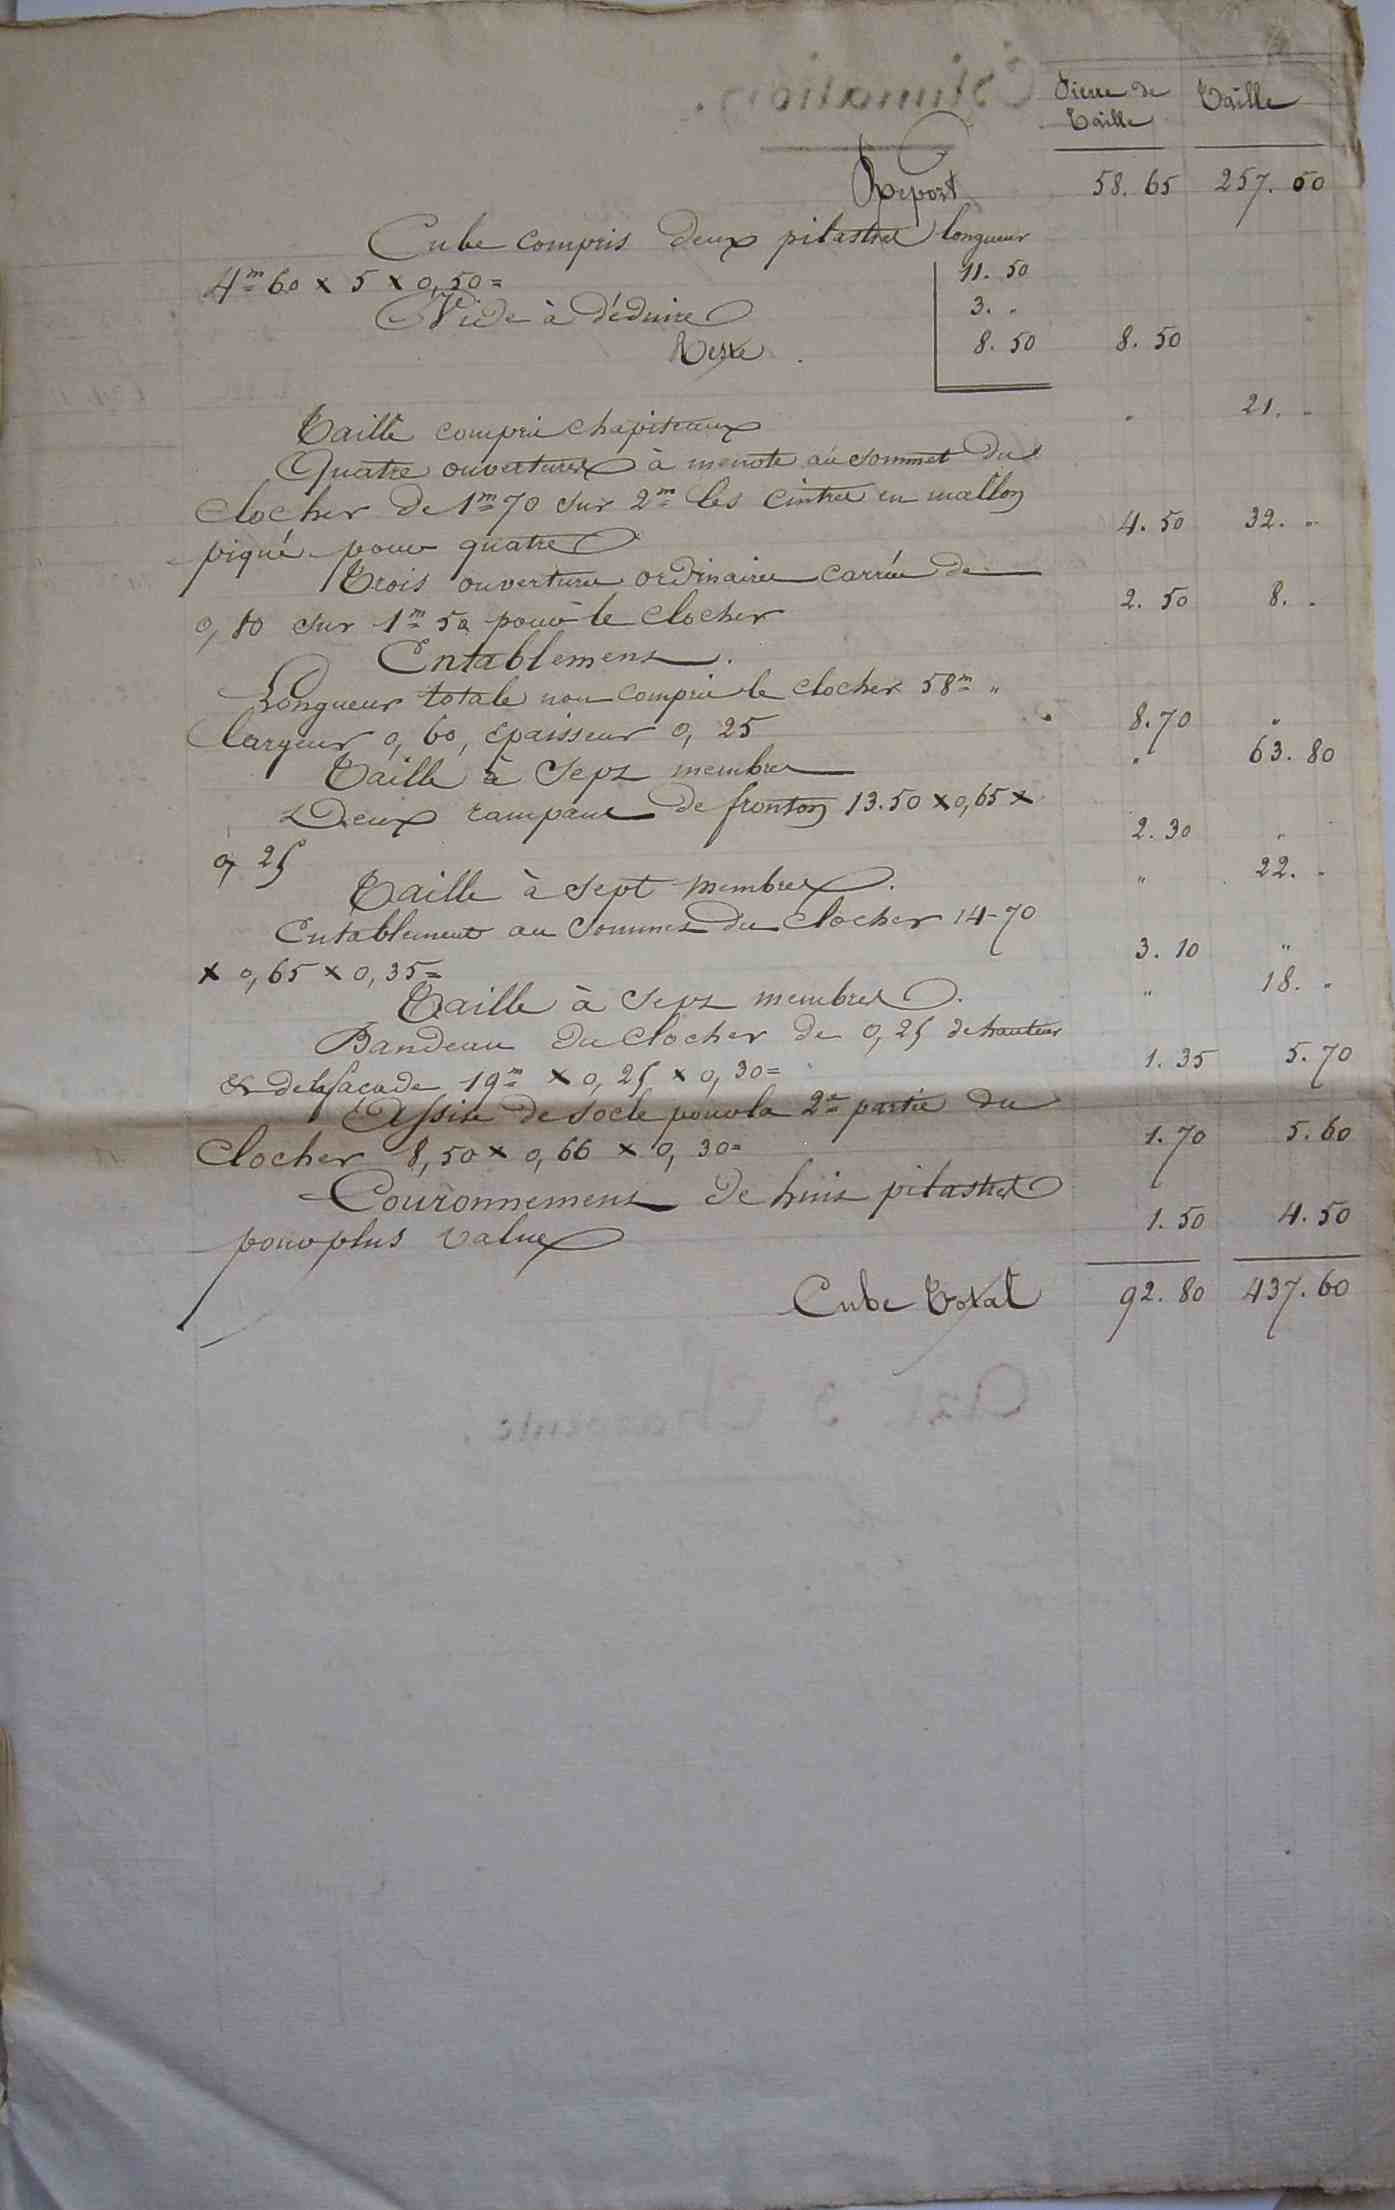 Pierre de Taille
Taille
Report 58. 65 257. 50
Cube compris deux pilastres longueur
4m 60 x 5 x 0,50 = 11. 50
Vide à déduire 3. "
Reste . 8. 50 8. 50
Taille compris chapiteaux " 21. "
Quatre ouvertures à menote au sommet du
clocher de 1m 70 sur 2m les cintres en mallon
piqué pour quatre 4. 50 32. "
Trois ouvertures ordinaires carrées de
0, 80 sur 1m 50 pour le clocher 2. 50 8. "
Entablement.
Longueur totale non compris le clocher 58m "
largeur 0, 60, epaisseur 0, 25 8. 70 "
Taille à Sept membres " 63. 80
Deux rampans de fronton 13. 50 x 0,65 x
0, 25 2. 30 "
Taille à Sept membres. " 22. "
Entablement au Sommet du Clocher 14-70
x 0,65 x 0,35 = 3. 10 "
Taille à Sept membres. " 18. "
Bandeau du Clocher de 0,25 de hauteur
& de la façade 19m x 0,25 x 0,30 = 1. 35 5. 70
Assise de socle pour la 2e partie du
Clocher 8,50 x 0,66 x 0,30 = 1. 70 5. 60
Couronnement de huit pilastres
pour plus value 1. 50 4. 50
Cube Total 92. 80 437. 60